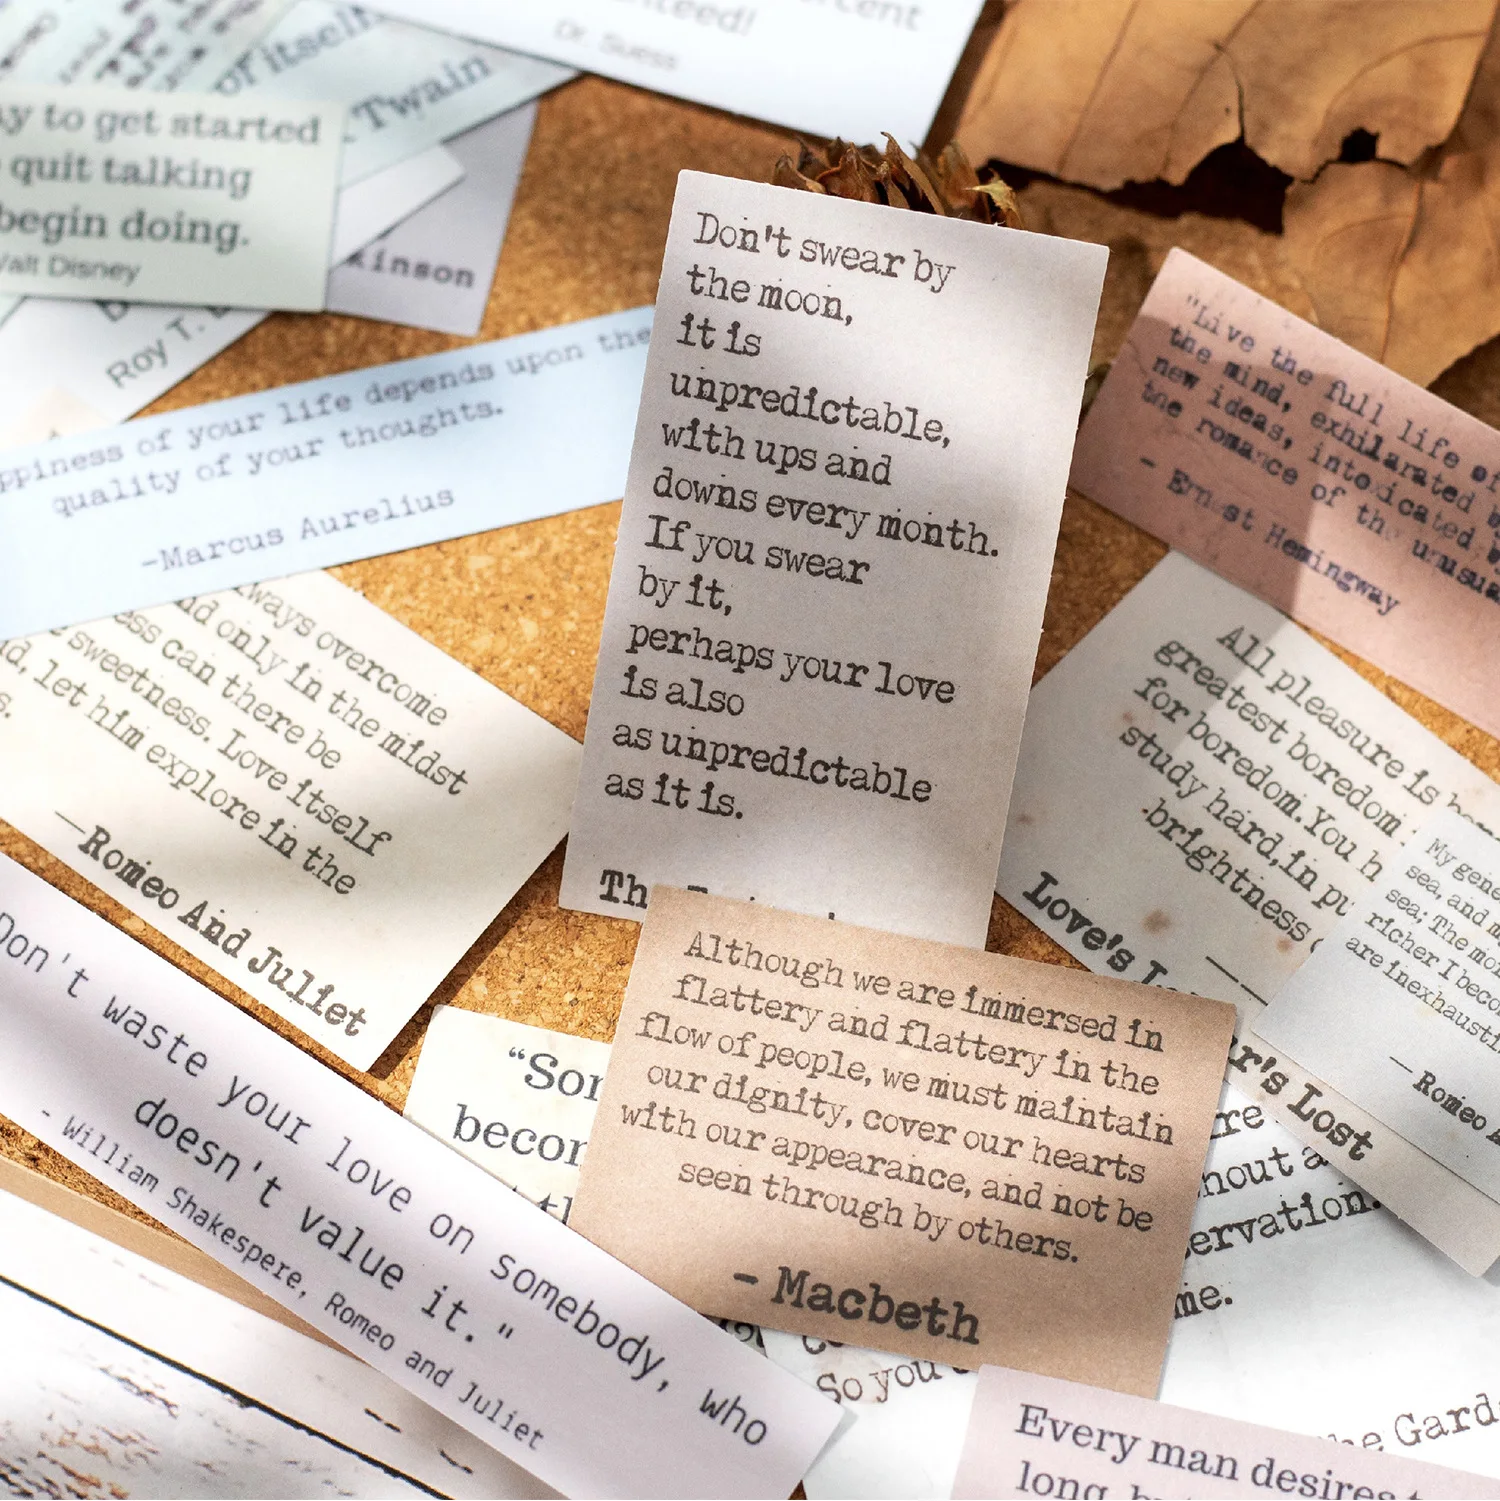 anteed!
Dr. Suess
of itself
Twain
y to get started
quit talking
begin doing.
Walt Disney
kinson
Roy T.
ppiness of your life depends upon the
quality of your thoughts.
-Marcus Aurelius
Don't swear by
the moon,
it is
unpredictable,
with ups and
downs every month.
If you swear
by it,
perhaps your love
is also
as unpredictable
as it is.
Th
"Live the full life of
the mind, exhilarated by
new ideas, intoxicated by
the romance of the unusual
- Ernest Hemingway
always overcome
nd only in the midst
ess can there be
sweetness. Love itself
d, let him explore in the
s.
—Romeo And Juliet
All pleasure is
greatest boredom
for boredom.You h
study hard,in pu
brightness
Love's L
r's Lost
My gene
sea, and m
sea; The mo
richer I beco
are inexhausti
—Romeo A
Don't waste your love on somebody, who
doesn't value it."
- William Shakespere, Romeo and Juliet
“Som
becom
th
Although we are immersed in
flattery and flattery in the
flow of people, we must maintain
our dignity, cover our hearts
with our appearance, and not be
seen through by others.
- Macbeth
re
hout a
ervation.
me.
So you
he Gard
Every man desires t
long, b